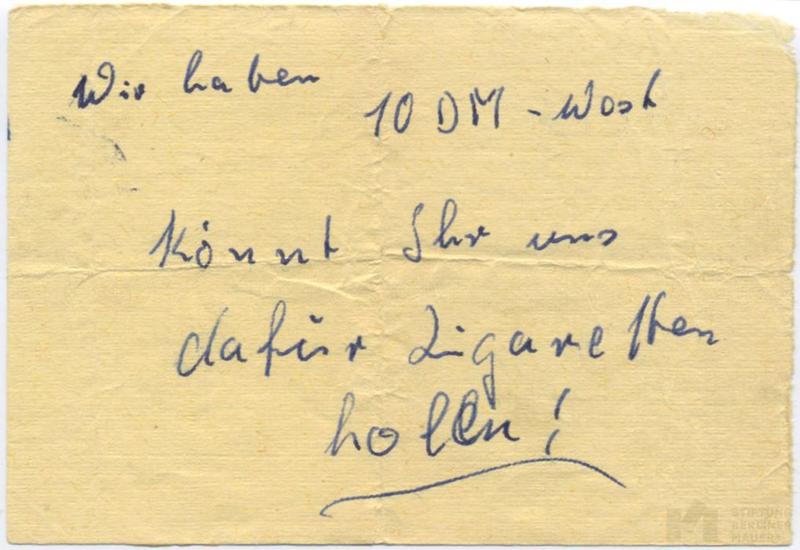 Wir haben
10 DM - West
Könnt Ihr uns
dafür Zigaretten
holen!
STIFTUNG
BERLINER
MAUER